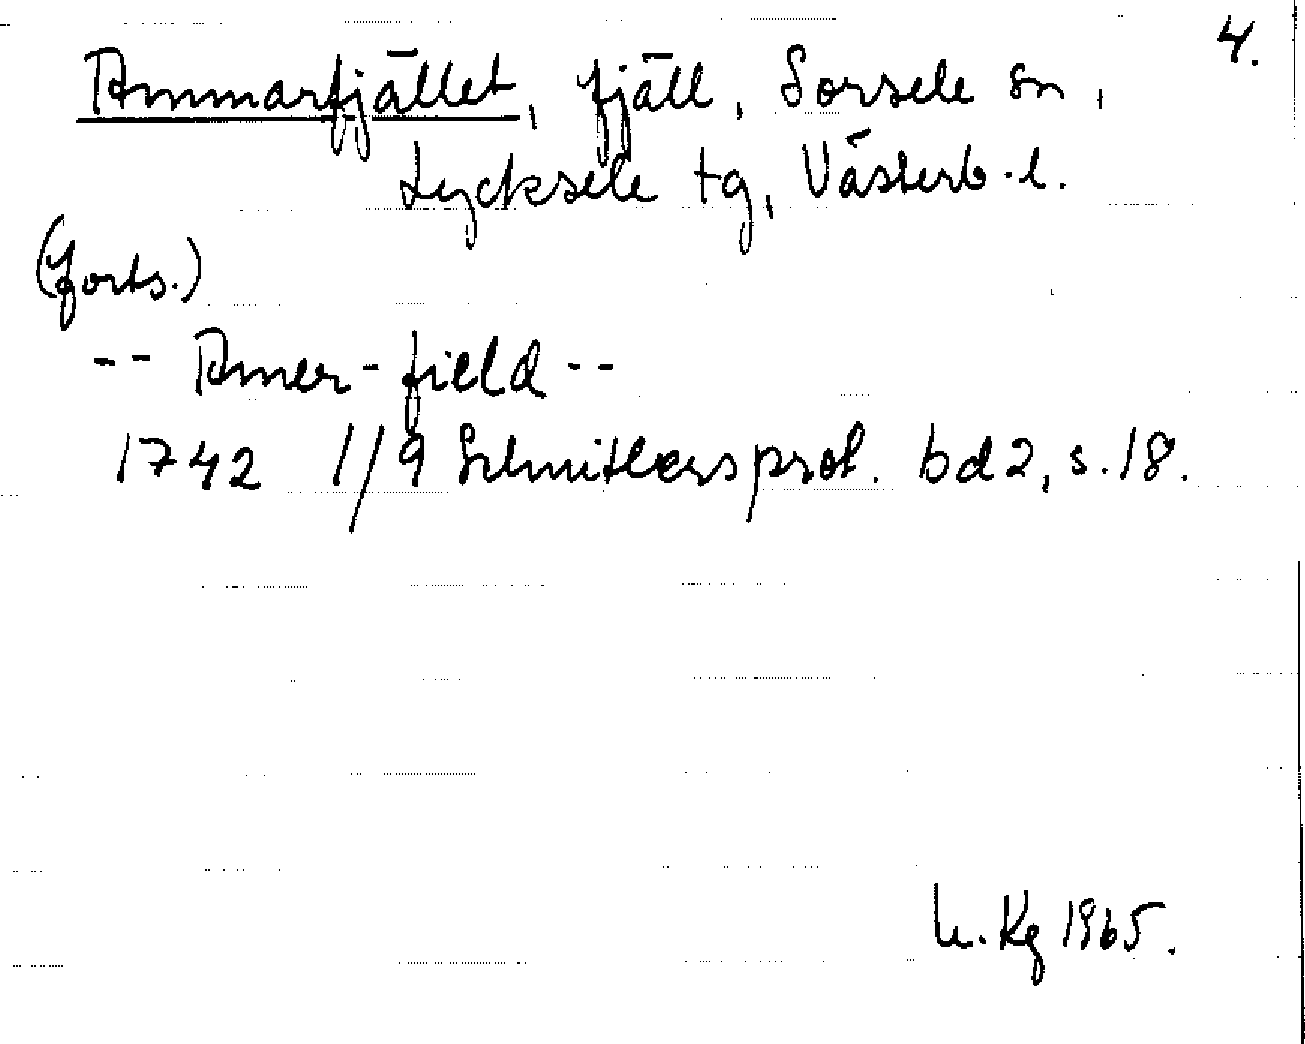 4.
Ammarfjället, fjäll, Sorsele sn,
Lycksele tg, Västerb. l.
(forts.)
-- Amer-field --
1742 1/9 Schnitlers prot. bd 2, s. 18.
Kg 1965.